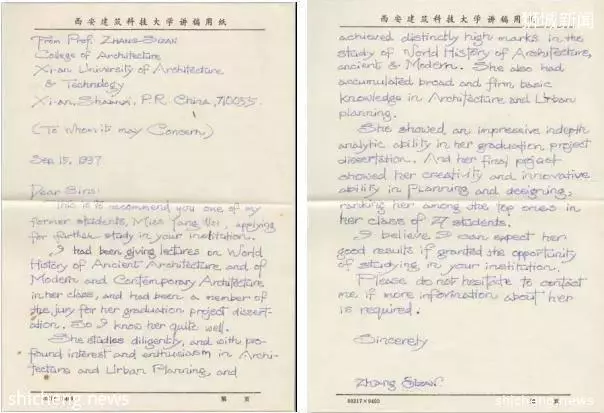 西安建筑科技大学讲稿用纸
From Prof. ZHANG SIZAN
College of Architecture
Xi-an University of Architecture
& Technology
Xi-an, Shaanxi, P.R. China, 710055
(To whom it may Concern)
Sep, 15, 1997
Dear Sirs:
This is to recommend you one of my
former students, Miss Yang Wei, applying
for further study in your institution.
I had been giving lectures on World
History of Ancient Architecture, and of
Modern and Contemporary Architecture
in her class, and had been a member of
the jury for her graduation project dissert-
ation. So I know her quite well.
She studies diligently, and with pro-
found interest and enthusiasm in Archi-
tecture and Urban Planning, and
第 页
shicheng.news
狮城新闻
西安建筑科技大学讲稿用
achieved distinctly high marks in the
study of World History of Architecture,
ancient & Modern. She also had
accumulated broad and firm basic
knowledge in Architecture and Urban
planning.
She showed an impressive indepth
analytic ability in her graduation project
dissertation. And her final project
showed her creativity and innovative
ability in Planning and designing,
ranking her among the top ones in
her class of 27 students.
I believe I can expect her
good results if granted the opportunity
of studying in your institution.
Please do not hesitate to contact
me if more information about her
is required.
Sincerely
Zhang Sizan
页
shicheng.news